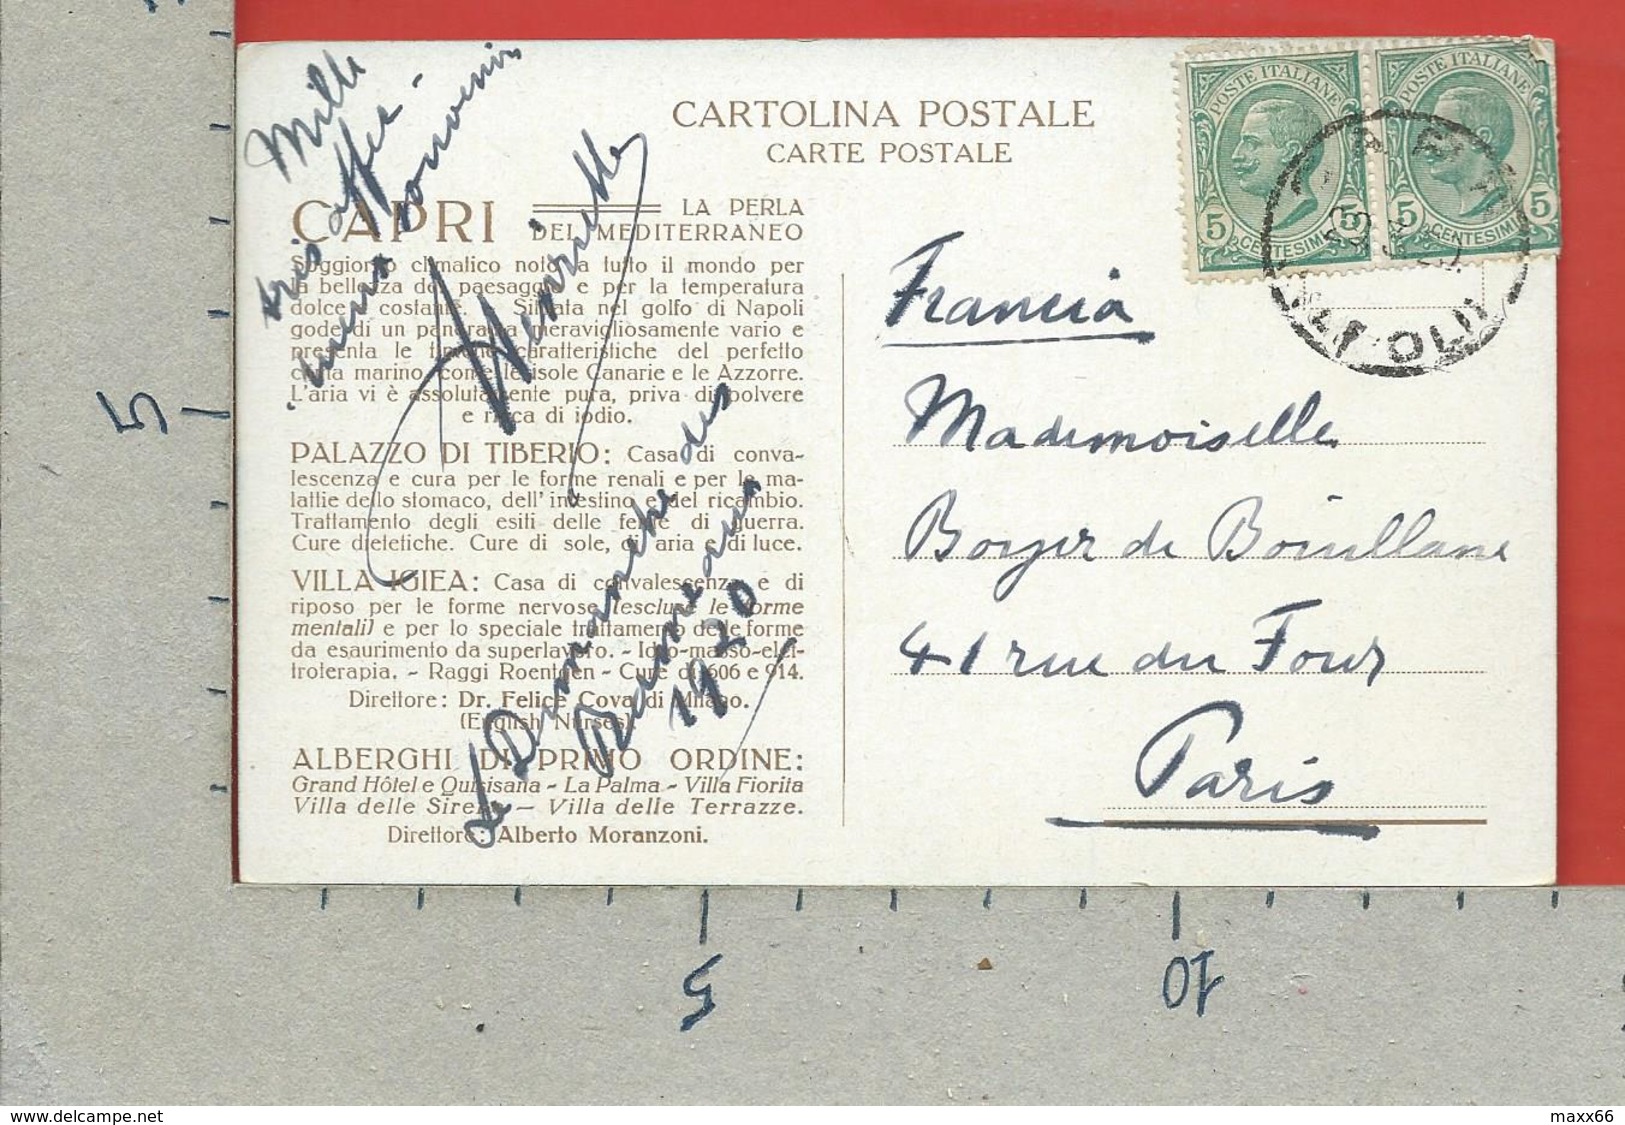 CARTOLINA POSTALE
CARTE POSTALE
POSTE ITALIANE
5 CENTESIMI 5
POSTE ITALIANE
5 CENTESIMI 5
CAPRI
LA PERLA
DEL MEDITERRANEO
Soggiorno climatico noto a tutto il mondo per
la bellezza del paesaggio e per la temperatura
dolce e costante. - Situata nel golfo di Napoli
gode di un panorama meravigliosamente vario e
presenta le caratteristiche del perfetto
clima marino, come le isole Canarie e le Azzorre.
L'aria vi è assolutamente pura, priva di polvere
e ricca di iodio.
PALAZZO DI TIBERIO: Casa di conva-
lescenza e cura per le forme renali e per le ma-
lattie dello stomaco, dell'intestino e del ricambio.
Trattamento degli esiti delle ferite di guerra.
Cure dietetiche. Cure di sole, di aria e di luce.
VILLA IGIEA: Casa di convalescenza e di
riposo per le forme nervose (escluse le forme
mentali) e per lo speciale trattamento delle forme
da esaurimento da superlavoro. - Idro-masso-elet-
troterapia. - Raggi Roentgen - Cure di 606 e 914.
Direttore: Dr. Felice Cova di Milano.
(English Nurses).
ALBERGHI DI PRIMO ORDINE:
Grand Hôtel e Quisisana - La Palma - Villa Fiorita
Villa delle Sirene - Villa delle Terrazze.
Direttore: Alberto Moranzoni.
Mille
affec-
souvenirs
Henriette
Le Dimanche des
Rameaux
1920
Francia
Mademoiselle
Boyer de Bouillane
41 rue du Four
Paris
5
5
10
maxx66